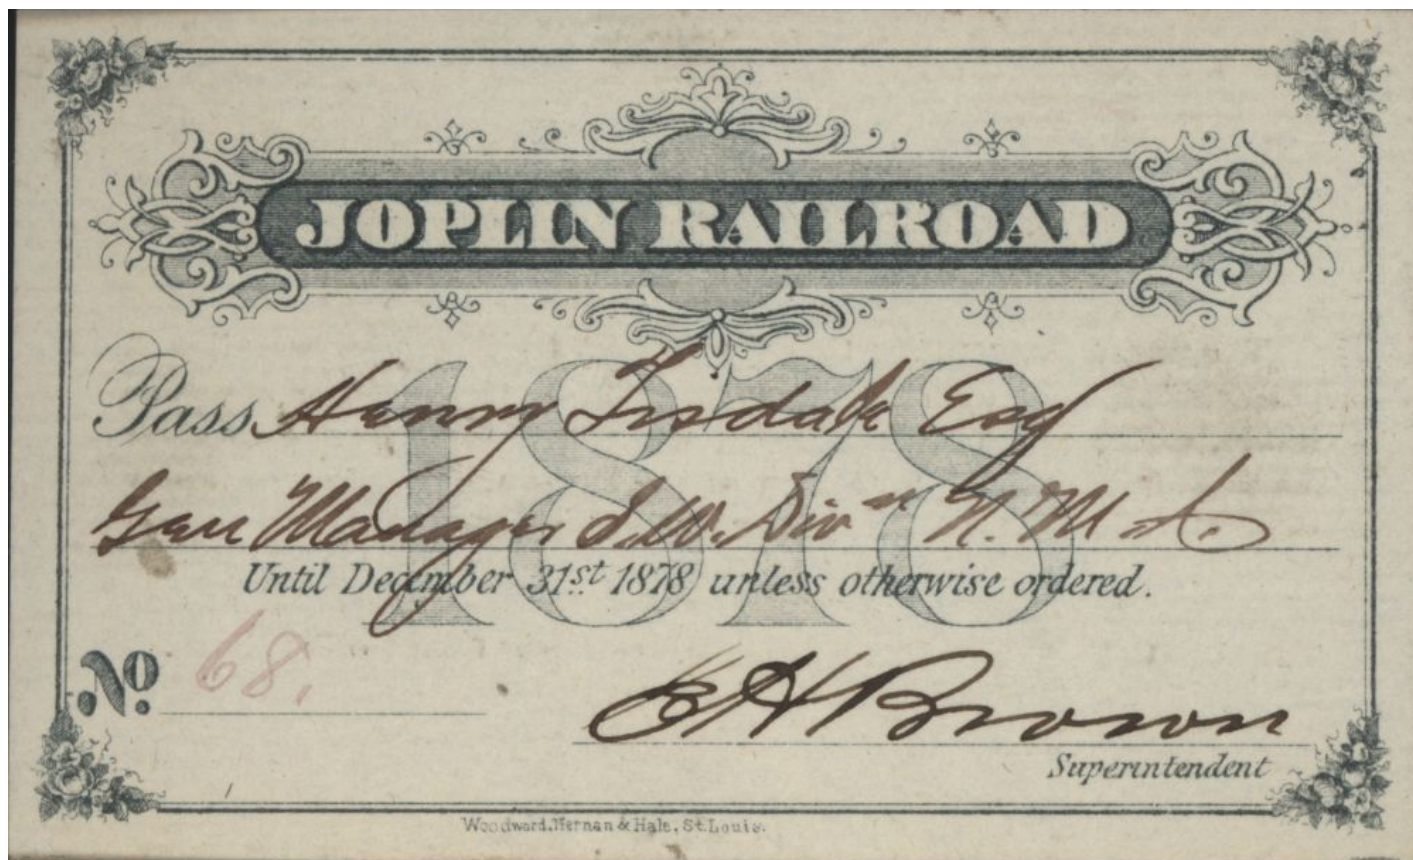 JOPLIN RAILROAD
1878
Pass Henry Tisdale Esq
Gen Manager S. W. Divn N. M. A.
Until December 31st 1878 unless otherwise ordered.
No. 68.
E H Brown
Superintendent
Woodward, Tiernan & Hale, St. Louis.